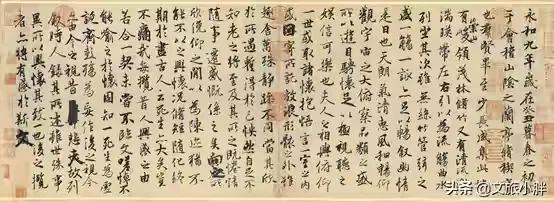 永和九年歲在癸丑暮春之初會
于會稽山陰之蘭亭脩稧事
也羣賢畢至少長咸集此地
有崇山峻領茂林脩竹又有清流激
湍暎帶左右引以為流觴曲水
列坐其次雖無絲竹管弦之
盛一觴一詠亦足以暢敘幽情
是日也天朗氣清惠風和暢仰
觀宇宙之大俯察品類之盛
所以遊目騁懷足以極視聽之
娛信可樂也夫人之相與俯仰
一世或取諸懷抱悟言一室之內
或因寄所託放浪形骸之外雖
趣舍萬殊靜躁不同當其欣
於所遇蹔得於己快然自足不
知老之將至及其所之既惓情
隨事遷感慨係之矣向之所
欣俛仰之閒以為陳迹猶不
能不以之興懷況脩短隨化終
期於盡古人云死生亦大矣豈
不痛哉每攬昔人興感之由
若合一契未嘗不臨文嗟悼不
能喻之於懷固知一死生為虛
誕齊彭殤為妄作後之視今
亦由今之視昔悲夫故列
敘時人錄其所述雖世殊事
異所以興懷其致一也後之攬
者亦將有感於斯文
头条 @文旅小胖